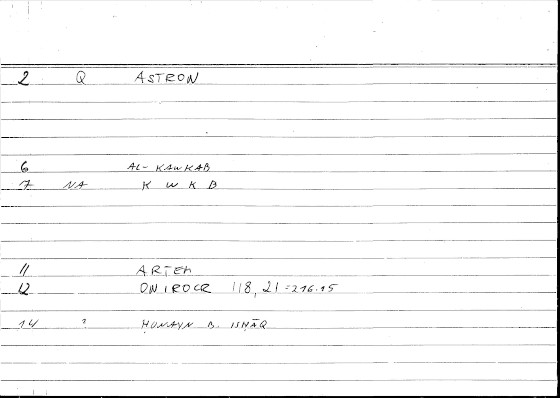 2 Q ASTRON
6 AL-KAWKAB
7 NA K W K B
11 ARTEM
12 ONIROCR 118, 21 = 216.15
14 ? ḤUNAYN B. ISḤĀQ